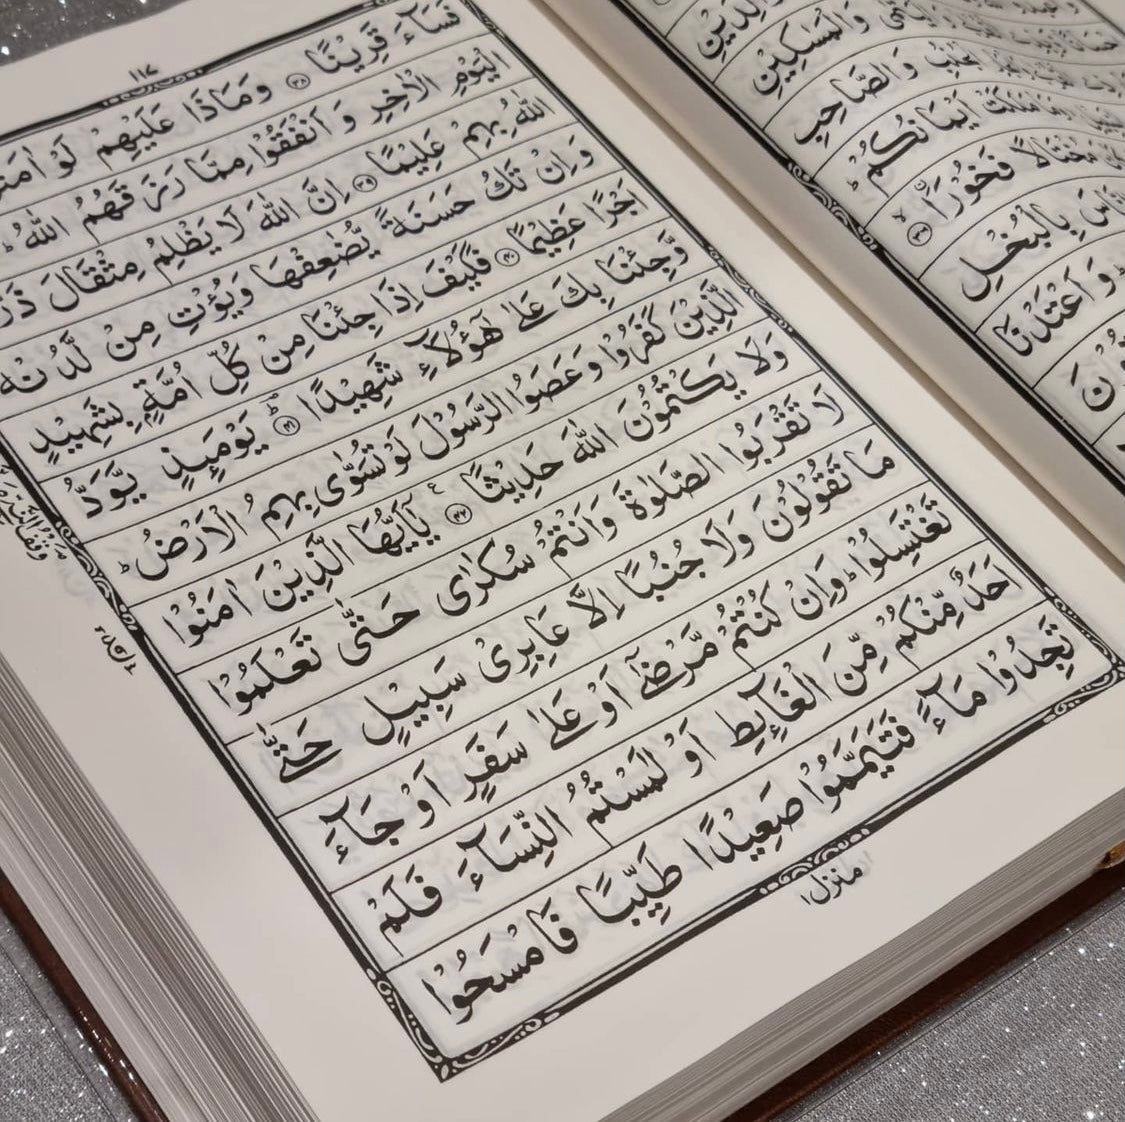 ١١٤
فَسَآءَ قَرِيْنًا ۝٣٨ وَمَاذَا عَلَيْهِمْ لَوْ اٰمَنُوْا
الْيَوْمِ الْاٰخِرِ وَ اَنْفَقُوْا مِمَّا رَزَقَهُمُ اللّٰهُ ؕ
اللّٰهُ بِهِمْ عَلِيْمًا ۝٣٩ اِنَّ اللّٰهَ لَا يَظْلِمُ مِثْقَالَ
وَاِنْ تَكُ حَسَنَةً يُّضٰعِفْهَا وَيُؤْتِ مِنْ لَّدُنْهُ
اَجْرًا عَظِيْمًا ۝٤٠ فَكَيْفَ اِذَا جِئْنَا مِنْ كُلِّ اُمَّةٍۭ بِشَهِيْدٍ
وَّجِئْنَا بِكَ عَلٰى هٰٓؤُلَآءِ شَهِيْدًا ۝٤١ يَوْمَىِٕذٍ يَّوَدُّ
الَّذِيْنَ كَفَرُوْا وَعَصَوُا الرَّسُوْلَ لَوْ تُسَوّٰى بِهِمُ الْاَرْضُ ؕ
وَلَا يَكْتُمُوْنَ اللّٰهَ حَدِيْثًا ۝٤٢ يٰٓاَيُّهَا الَّذِيْنَ اٰمَنُوْا
لَا تَقْرَبُوا الصَّلٰوةَ وَاَنْتُمْ سُكٰرٰى حَتّٰى تَعْلَمُوْا
مَا تَقُوْلُوْنَ وَلَا جُنُبًا اِلَّا عَابِرِىْ سَبِيْلٍ حَتّٰى
تَغْتَسِلُوْا ؕ وَاِنْ كُنْتُمْ مَّرْضٰٓى اَوْ عَلٰى سَفَرٍ اَوْ جَآءَ
اَحَدٌ مِّنْكُمْ مِّنَ الْغَآىِٕطِ اَوْ لٰمَسْتُمُ النِّسَآءَ فَلَمْ
تَجِدُوْا مَآءً فَتَيَمَّمُوْا صَعِيْدًا طَيِّبًا فَامْسَحُوْا
منزل ١
وَالْمَسٰكِيْنِ
وَالصَّاحِبِ
مَلَكَتْ اَيْمَانُكُمْ ؕ
مُخْتَالًا فَخُوْرَا
بِالْبُخْلِ
وَاَعْتَدْنَا